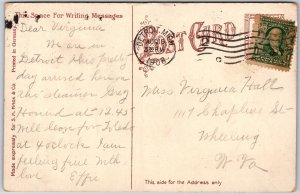 This Space For Writing Messages
POST CARD
Dear Virginia
We are in
Detroit Also pretty
day arrived here on
the steamer Grey
Hound at 12.45
Will leave for Toledo
at 4 oclock I am
feeling fine with
love Effie
DETROIT, MICH.
1908
Miss Virginia Hall
1117 Chaplins St
Wheeling
W. Va
This side for the Address
Made expressly for S. H. Knox & Co
Printed in Germany